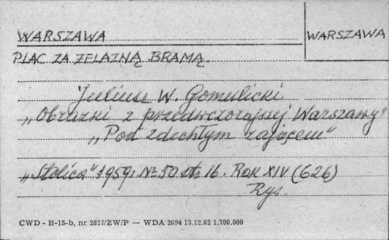 WARSZAWA
WARSZAWA
PLAC ZA ŻELAZNĄ BRAMĄ.
Juliusz W. Gomulicki
„Obrazki z przedwczorajszej Warszawy"
„Pod zdechłym zającem"
„Stolica" 1959. Nr 50 str. 16. Rok XIV (626)
Rys.
CWD - II-15-b, nr 2827/ZW/P — WDA 2694 13.12.62 1,700.000